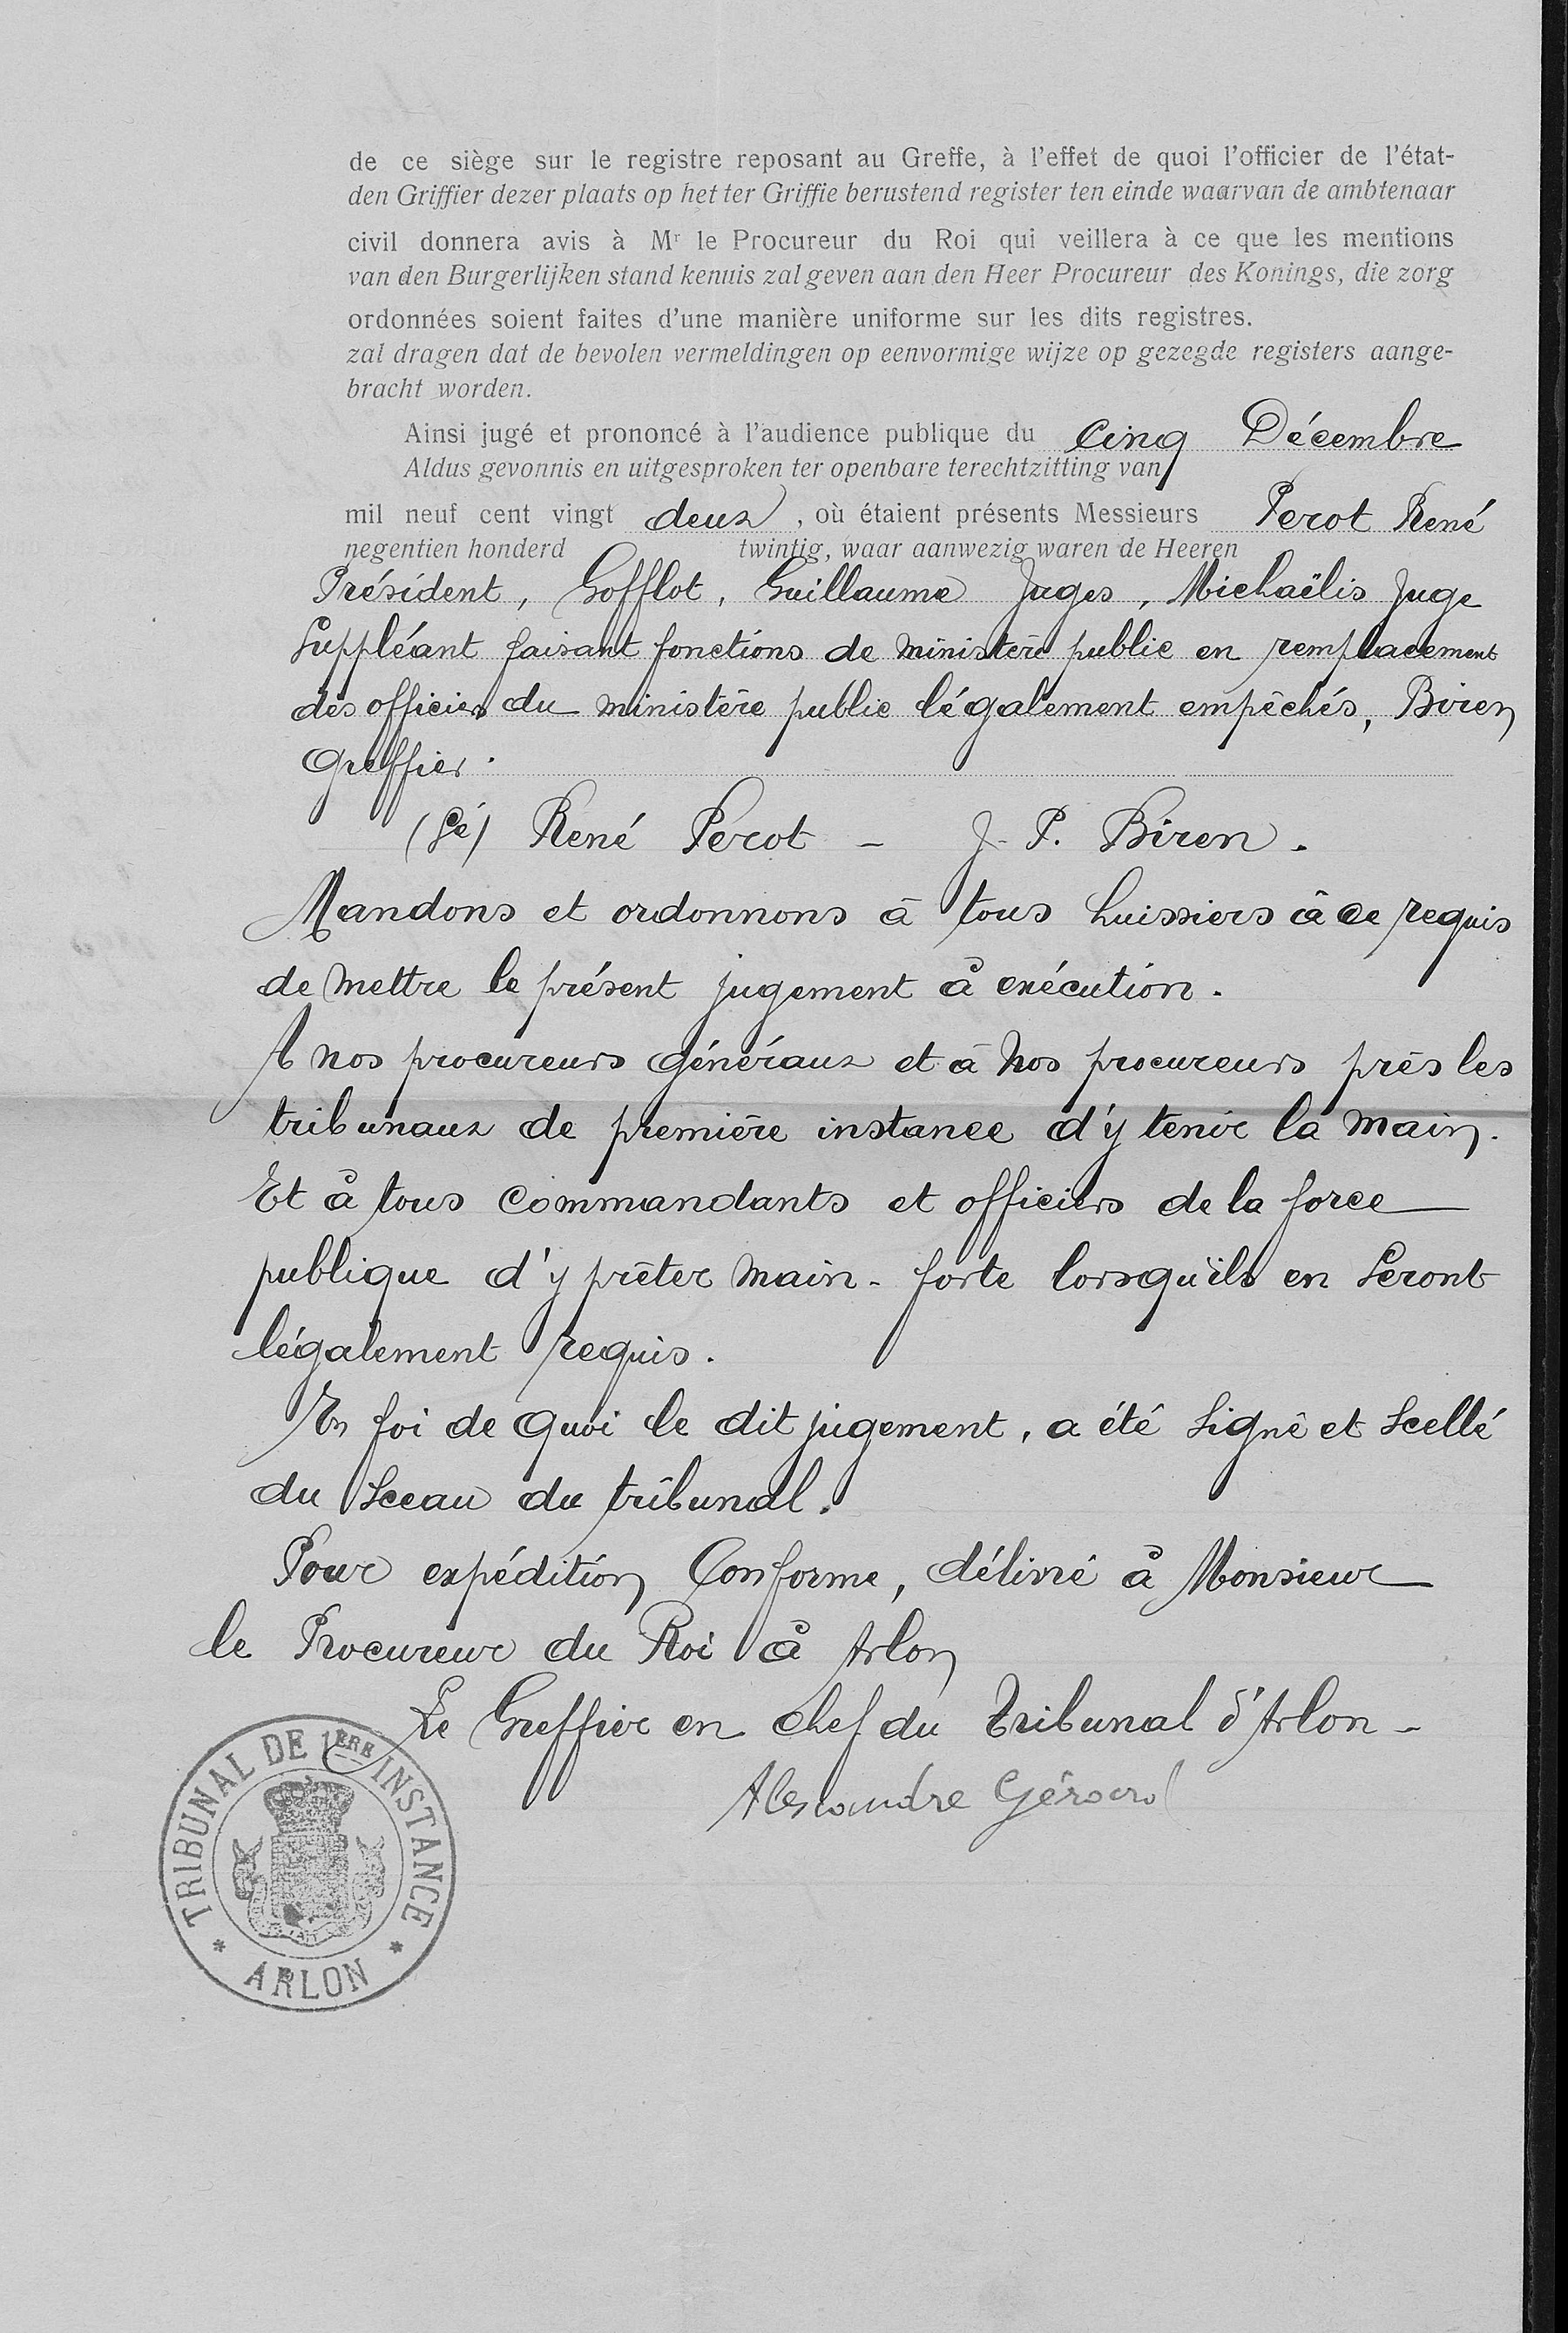 de ce siège sur le registre reposant au Greffe, à l'effet de quoi l'officier de l'état-
den Griffier dezer plaats op het ter Griffie berustend register ten einde waarvan de ambtenaar
civil donnera avis à Mr le Procureur du Roi qui veillera à ce que les mentions
van den Burgerlijken stand kennis zal geven aan den Heer Procureur des Konings, die zorg
ordonnées soient faites d'une manière uniforme sur les dits registres.
zal dragen dat de bevolen vermeldingen op eenvormige wijze op gezegde registers aange-
bracht worden.
Ainsi jugé et prononcé à l'audience publique du cinq Décembre
Aldus gevonnis en uitgesproken ter openbare terechtzitting van
mil neuf cent vingt deux, où étaient présents Messieurs Perot René
negentien honderd twintig, waar aanwezig waren de Heeren
Président, Gofflot, Guillaume Juges, Michaëlis Juge
Suppléant faisant fonctions de ministère public en remplacement
des officiers du ministère public légalement empêchés, Biren
Greffier.
(Sé) René Perot - J. P. Biren.
Mandons et ordonnons à tous huissiers à ce requis
de mettre le présent jugement à exécution.
A nos procureurs généraux et à nos procureurs près les
tribunaux de première instance d'y tenir la main.
Et à tous commandants et officiers de la force
publique d'y prêter main-forte lorsqu'ils en seront
légalement requis.
En foi de quoi le dit jugement, a été signé et scellé
du sceau du tribunal.
Pour expédition Conforme, délivré à Monsieur
le Procureur du Roi à Arlon
Le Greffier en chef du Tribunal d'Arlon -
Alexandre Gérard
TRIBUNAL DE 1ERE INSTANCE
* ARLON *